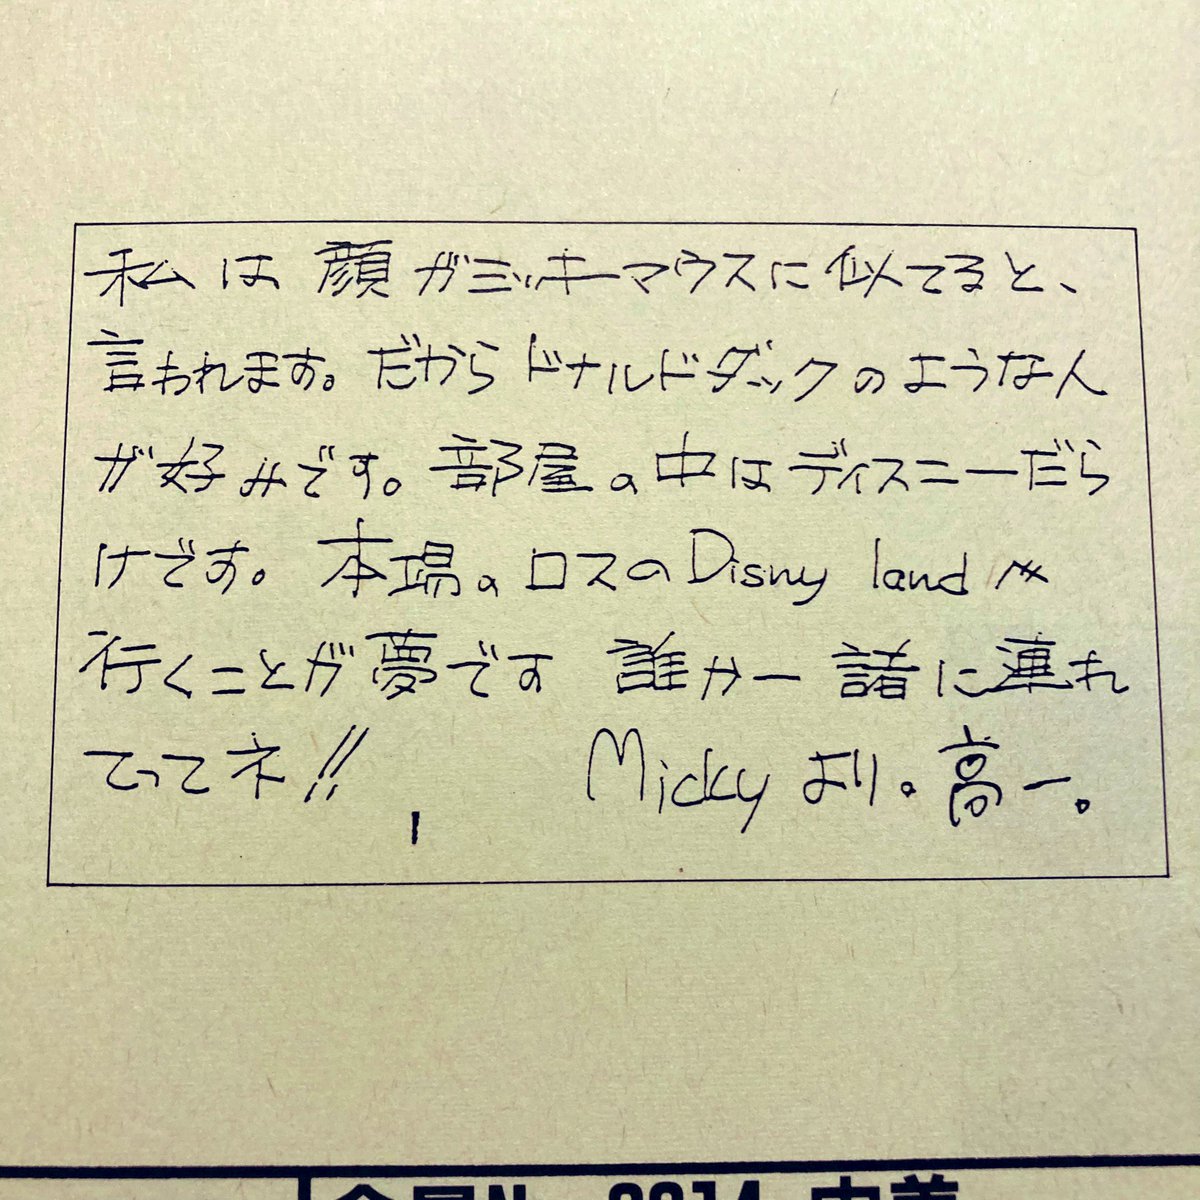 私は顔がミッキーマウスに似てると、
言われます。だからドナルドダックのような人
が好みです。部屋の中はディスニーだら
けです。本場のロスのDisny landへ
行くことが夢です 誰か一諸に連れ
てってネ!!
Mickyより。高一。